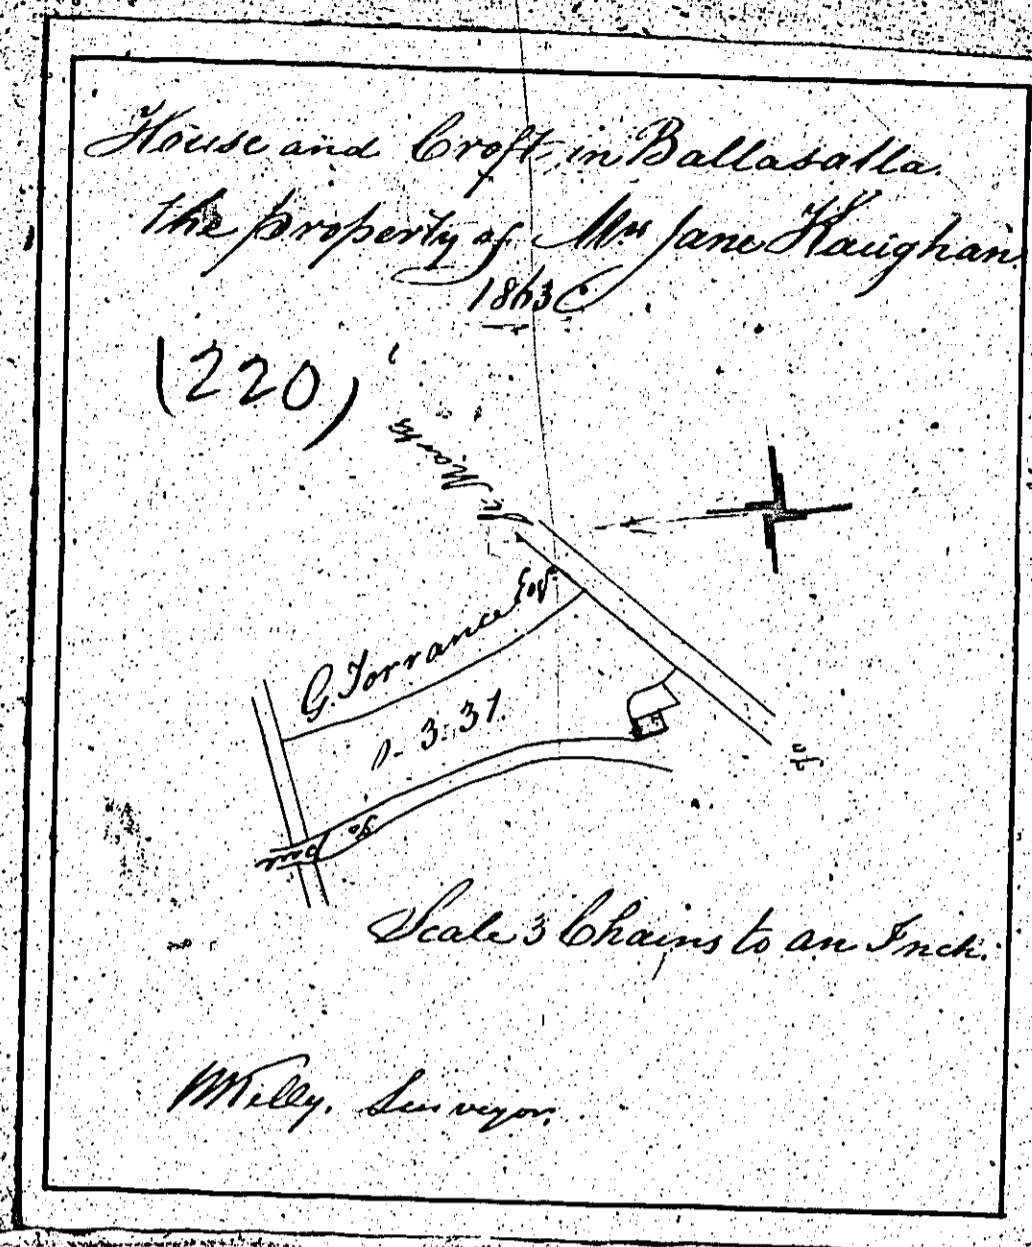 House and Croft in Ballasalla.
the property of Mrs Jane Kaughan.
1863
(220)
St Marks
G. Torrance Esqr
0-3:31.
to
road
Scale 3 Chains to an Inch.
WKelly. Surveyor.